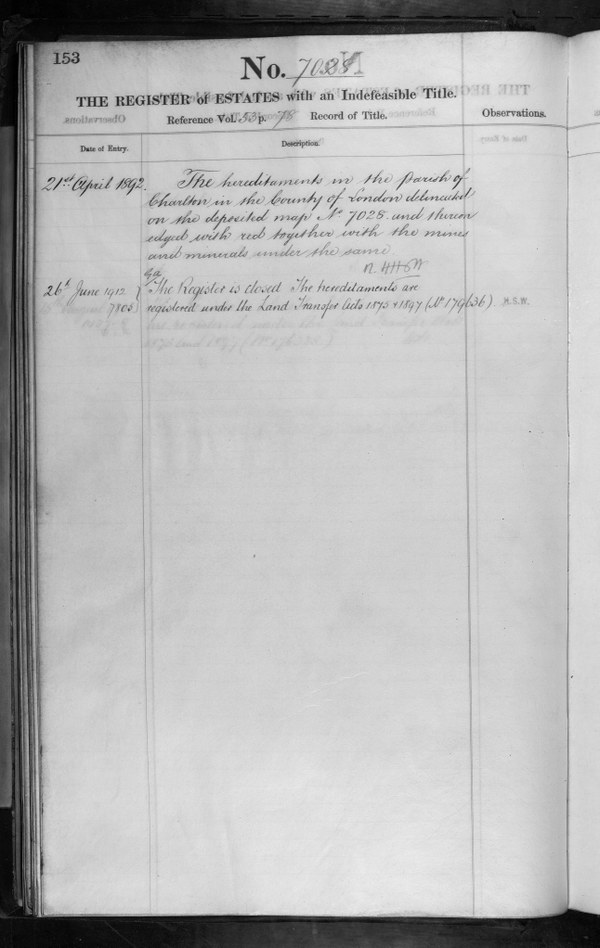 153
No. 7028
THE REGISTER of ESTATES with an Indefeasible Title.
Reference Vol. 53 p. 78 Record of Title.
Observations.
Date of Entry.
Description.
21st April 1892.
The hereditaments in the parish of
Charlton in the County of London delineated
on the deposited map No 7028 and therein
edged with red together with the mines
and minerals under the same
26th June 1912
7805
The Register is closed The hereditaments are
registered under the Land Transfer Acts 1875 & 1897 (No 179636)